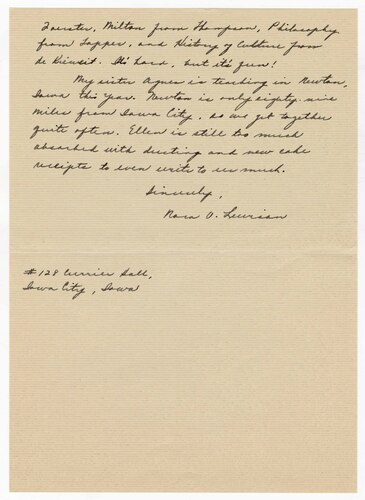 Foerster, Milton from Thompson, Philosophy
from Tapper, and History of Culture from
de Kiewiet. It's hard, but it's fun!
My sister Agnes is teaching in Newton,
Iowa this year. Newton is only eighty-nine
miles from Iowa City, so we get together
quite often. Ellen is still too much
absorbed with dusting and new cake
receipts to even write to us much.
Sincerely,
Nora O.
#128 Currier Hall,
Iowa City, Iowa